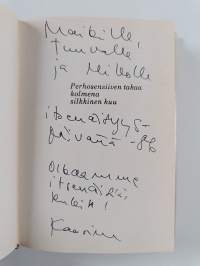 Maikille,
Tuuvalle
ja Mikolle
Perhosensiiven takaa
kolmena
silkkinen kuu
itsenäisyys-
päivänä -86
Olkaamme
itsenäisiä
Kaarina